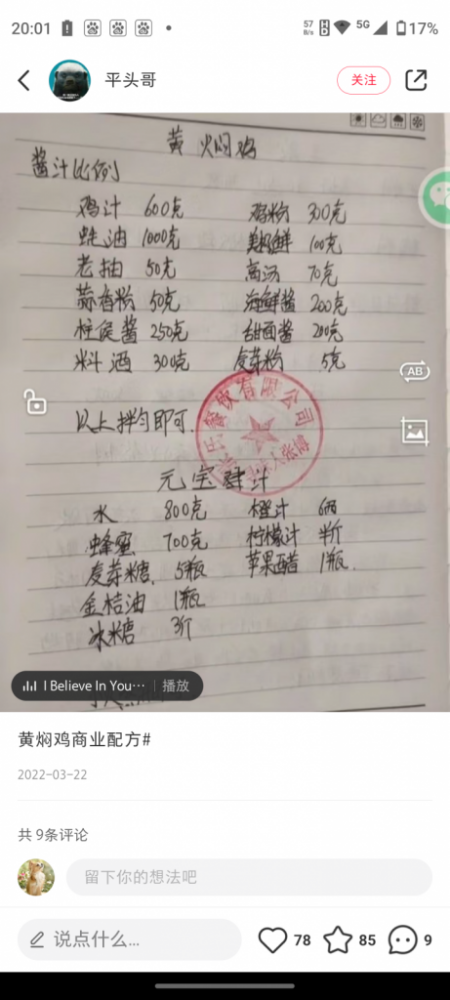 20:01
57 B/s
5G
17%
平头哥
关注
黄焖鸡
酱汁比例
鸡汁 600克 鸡粉 300克
蚝油 1000克 美极鲜 100克
老抽 50克 高汤 70克
蒜香粉 50克 海鲜酱 200克
柱侯酱 250克 甜面酱 200克
料酒 300克 麦芽粉 5克
以上拌匀即可.
餐饮有限公司
元宝 汁
水 800克 橙汁 6两
蜂蜜 700克 柠檬汁 半斤
麦芽糖. 5瓶 苹果醋 1瓶.
金桔油 1瓶
冰糖 3斤
AB
I Believe In You… 播放
黄焖鸡商业配方#
2022-03-22
共 9条评论
留下你的想法吧
说点什么...
78
85
9